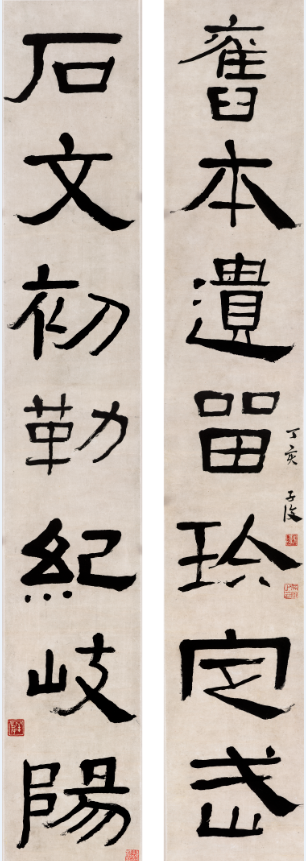 舊本遺留珍定武
丁亥 子復
石文初勒紀岐陽